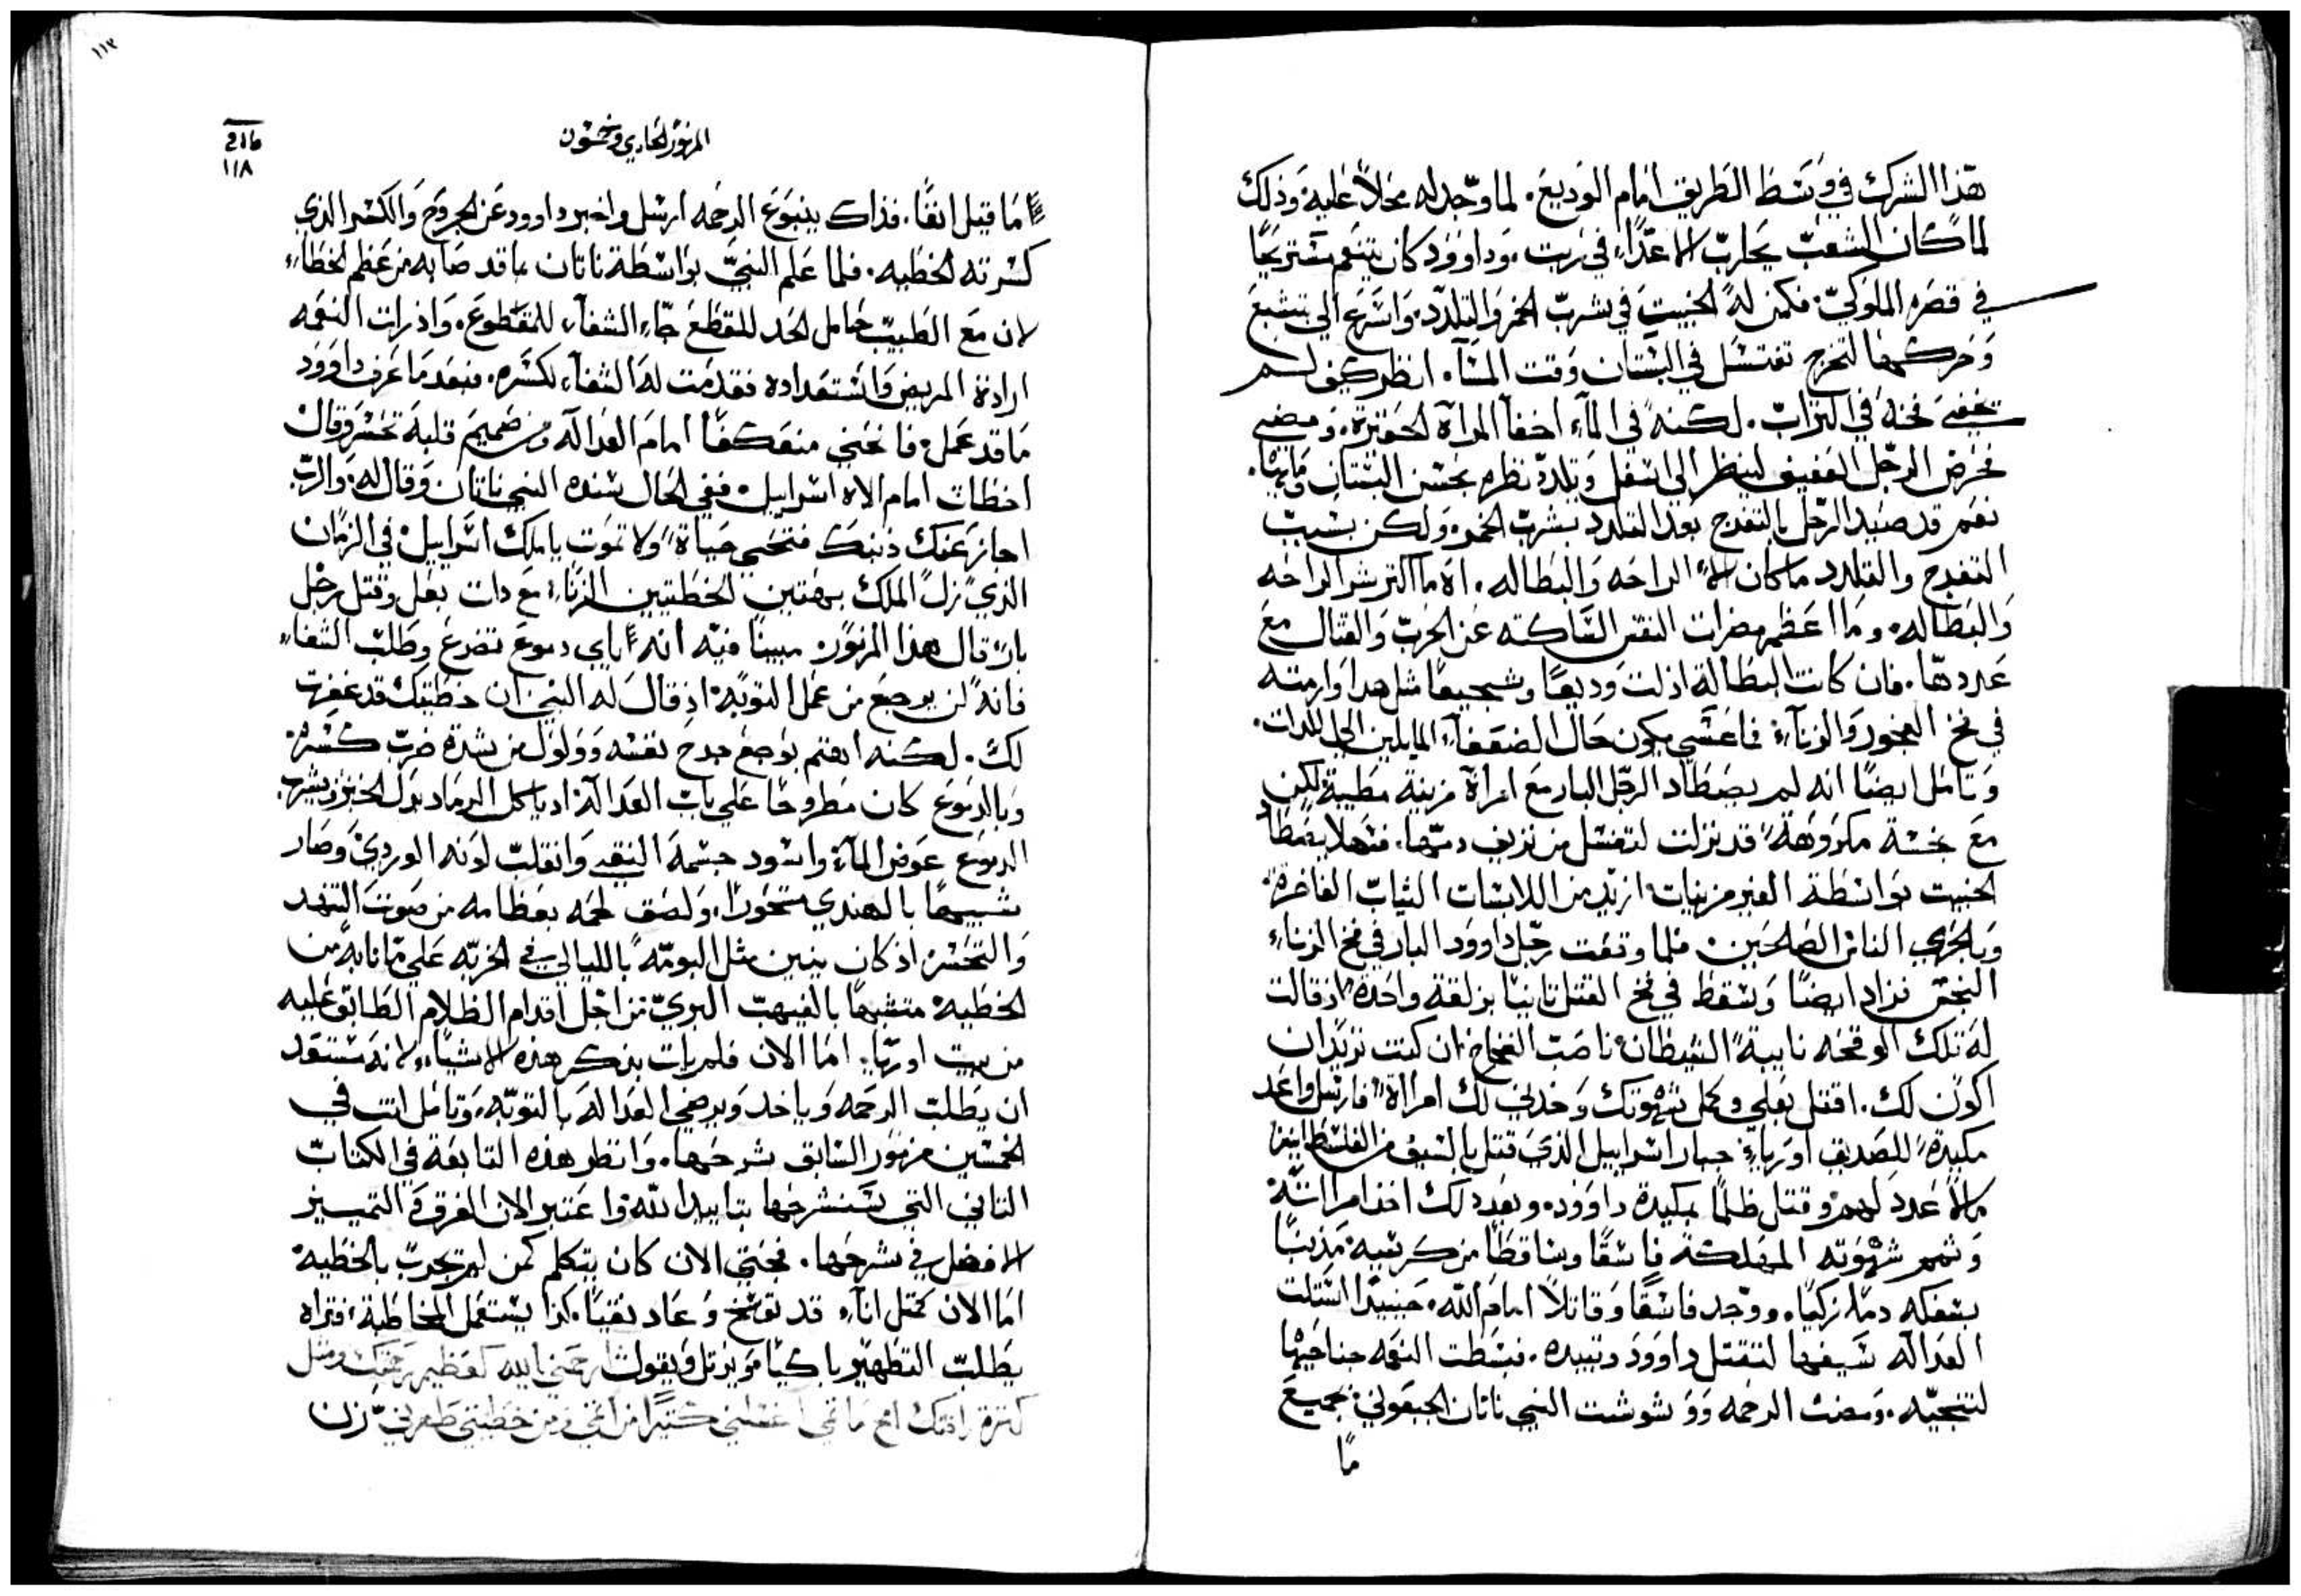 هذا الشرك في وسط الطريق امام الوديع. لما وجد له محلاً عليه وذلك
لما كان الشعب يحارب الاعداء في ربت. وداوود كان يتنعم مستريحًا
في قصره الملوكيّ. فكمن له الخبيث في شرب الخمر والتلدد. واسرع الي بتشبع
وحركها لتخرج تغتسل في البستان وقت المسآ. انظر كيف لم
يخفي فخه في التراب. لكنه في المآء اخفا المراة الحقيرة. ومضي
فحرض الرجل العفيف لينظر الي اسفل ويلدد نظره بحسن البستان ومآئها.
نعم قد صيد الرجل بالتفرج بعد التلدد بشرب الخمر. ولكن بسبب
التفرج والتلدد ما كان الا الراحه والبطاله. اه ما اكثر شر الراحه
والبطاله. وما اعظم مضرات النفس الساكته عن الحرب والقتال مع
عددها. فان كانت البطالة اذلت وديعًا وشجيعًا مثل هدا وارمته
في فخ الفجور والزناء. فما عسي يكون حال الضعفآء المايلين الي اللدات.
وتامل ايضًا انه لم يصطاد الرجل البار مع امراة مزينة مطيبة لكن
مع نجسة مكروهة قد نزلت لتغتسل من نزيف دمها. فتهلا يصطاد
الخبيث بواسطة الغير مزينات ازيد من اللابسات الثياب الفاخرة.
وبالحري الناس الصالحين. فلما وقعت رجل داوود البار في فخ الزناء
النجس فزاد ايضًا وسقط في فخ القتل ثانيًا بزلقة واحدة اذ قالت
له تلك الوقحه نايبة الشيطان ناصب الفخاخ ان كنت تريد ان
اكون لك. اقتل بعلي وكمل شهوتك وخدني لك امراة فارسل واعد
مكيدة للصديق اورياء جبار اسراييل الذي قتل بالسيف من الفلسطانيين
الا عدد لهم وقتل ظلمًا بمكيدة داوود. وبعد دلك اخد امراته
وتمم شهوته المهلكة فاسقًا وساقطًا من كرسيه مذنبًا
بسفكه دمًا زكيًا. ووجد فاسقًا وقاتلاً امام الله. حينيدا استلت
العدالة سيفها لتقتل داوود وتبيده. فبسطت النعمه جناحيها
لتنجيه. ومضت الرحمه ووشوشت النبي ناتان الجبعوني بجميع
ما
١١٣
المزمور الحادي وخمسون
١١٨
ما قيل انفًا. فذاك ينبوع الرحمه ارسل واخبر داوود عن الجروح والكسر الذي
كسرته الخطيه. فلما علم النبيّ بواسطة ناتان بما قد صابه من عظم الخطاء
لان مع الطبيب حامل الحد للقطع جاء الشفآء للمقطوع. واذ رات النعمه
ارادة المريض واستعداده فقدمت له الشفآء لكسره. فبعد ما عرف داوود
ما قد عمل فانحني منعكفًا امام العداله ومن صميم قلبه تحسر وقال
اخطات امام الاه اسراييل. ففي الحال سنده النبي ناتان وقال له. والرب
اجاز عنك ذنبك فتحيي حياة ولا تموت يا ملك اسراييل. في الزمان
الذي زل الملك بهتين الخطتيين الزناء مع دات بعل وقتل رجل
بار قال هذا المزمور مبينًا فيه انه باي دموع تضرع وطلب الشفاء
فانه لن يرجع من عمل التوبه. اذ قال له النبي ان خطيتك قد غفرت
لك. لكنه اهتم بوجع جرح نفسه وولول من شدة ضرب كسره.
وبالدموع كان مطروحًا علي باب العداله. اد ياكل الرماد بدل الخبز ويشرب
الدموع عوض المآء. واسود جسمه النقي وانقلب لونه الوردي وصار
شبيهًا بالهندي متحورًا. ولصق لحمه بعظامه من صوت التنهد
والتحسر اذ كان ينين مثل البومة بالليالي في الخربه علي ما نابه من
الخطيه. متشبهًا بالفيهب البريّ من اجل اقدام الظلام الطابق عليه
من بيت اوريا. اما الان فلم رات بذكر هذه الاشياء. لانه مستعد
ان يطلب الرحمه وياخد ويرضي العداله بالتوبه. وتامل انت في
الخمسين مزمور السابق شرحها. وانظر هذه التابعة في الكتاب
الثاني التي سنشرحها بتاييد الله. واعتبر الان الفرق والتمييز
الافضل في شرحها. فحتي الان كان يتكلم كمن لم يتجرب بالخطيه
اما الان كمثل اناء قد توسخ وعاد نقيًا. كذا يستعمل المخاطبة. فتراه
يطلب التطهير باكيًا ويرتل ويقول ارحمني يا الله كعظيم رحمتك ومثل
كثرة رافتك امح ماثمي اغسلني كثيرًا من اثمي ومن خطيتي طهرني.